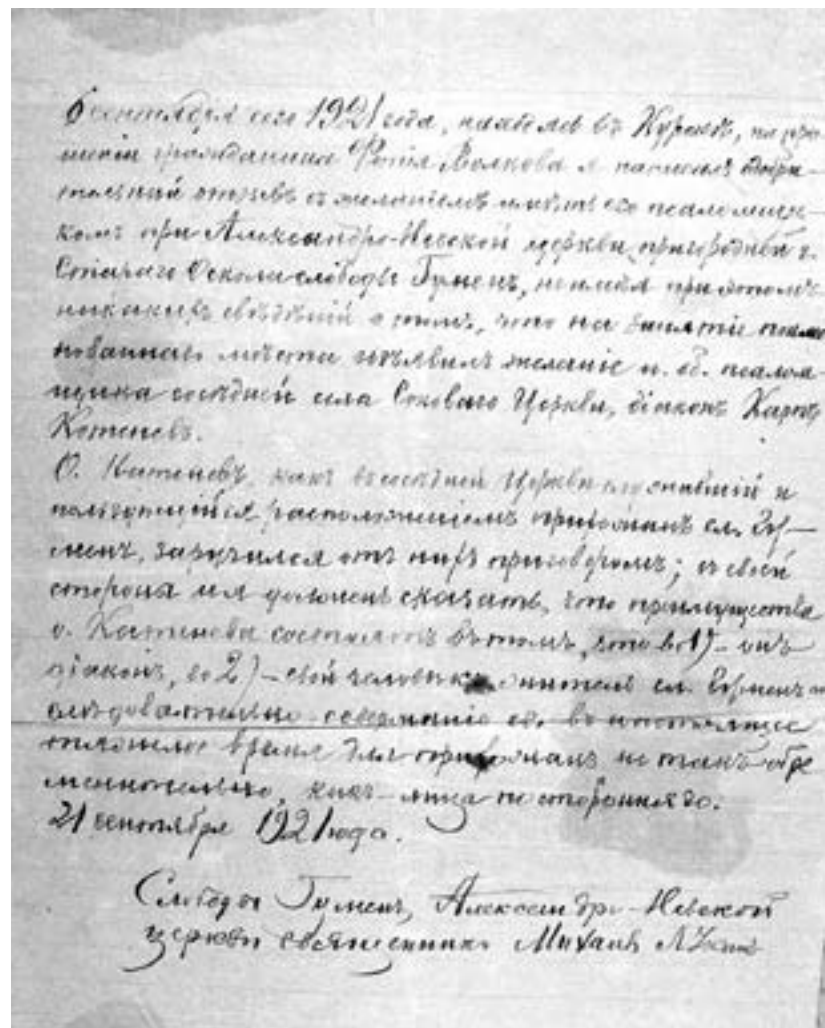 6 сентября сего 1921 года, находясь въ Курскѣ, по про-
шенiю гражданина Фотiя Волкова я написалъ одобри-
тельный отзывъ съ желанiемъ имѣть его псаломщи-
комъ при Александро-Невской церкви, пригородней г.
Стараго Оскола слободы Гуменъ, не имѣя при этомъ
никакихъ свѣдѣнiй о томъ, что на занятiе
мѣста изъявилъ желанiе и. об. псалом-
щика сосѣдней села Соковаго Церкви, дiаконъ Карпъ
Котеневъ.
О. Катеневъ, какъ въ сосѣдней Церкви служившiй и
пользующiйся расположенiемъ прихожанъ сл. Гу-
менъ, заручился отъ нихъ приговоромъ; съ своей
стороны и я долженъ сказать, что преимущества
о. Катенева состоятъ въ томъ, что во 1) – онъ
дiаконъ, во 2) – свой человѣкъ, житель сл. Гуменъ и
слѣдовательно содержанiе его въ настоящее
тяжелое время для прихожанъ не такъ обре
менительно, какъ лица посторонняго.
21 сентября 1921 года.
Слободы Гуменъ, Александро-Невской
церкви священникъ Михаилъ